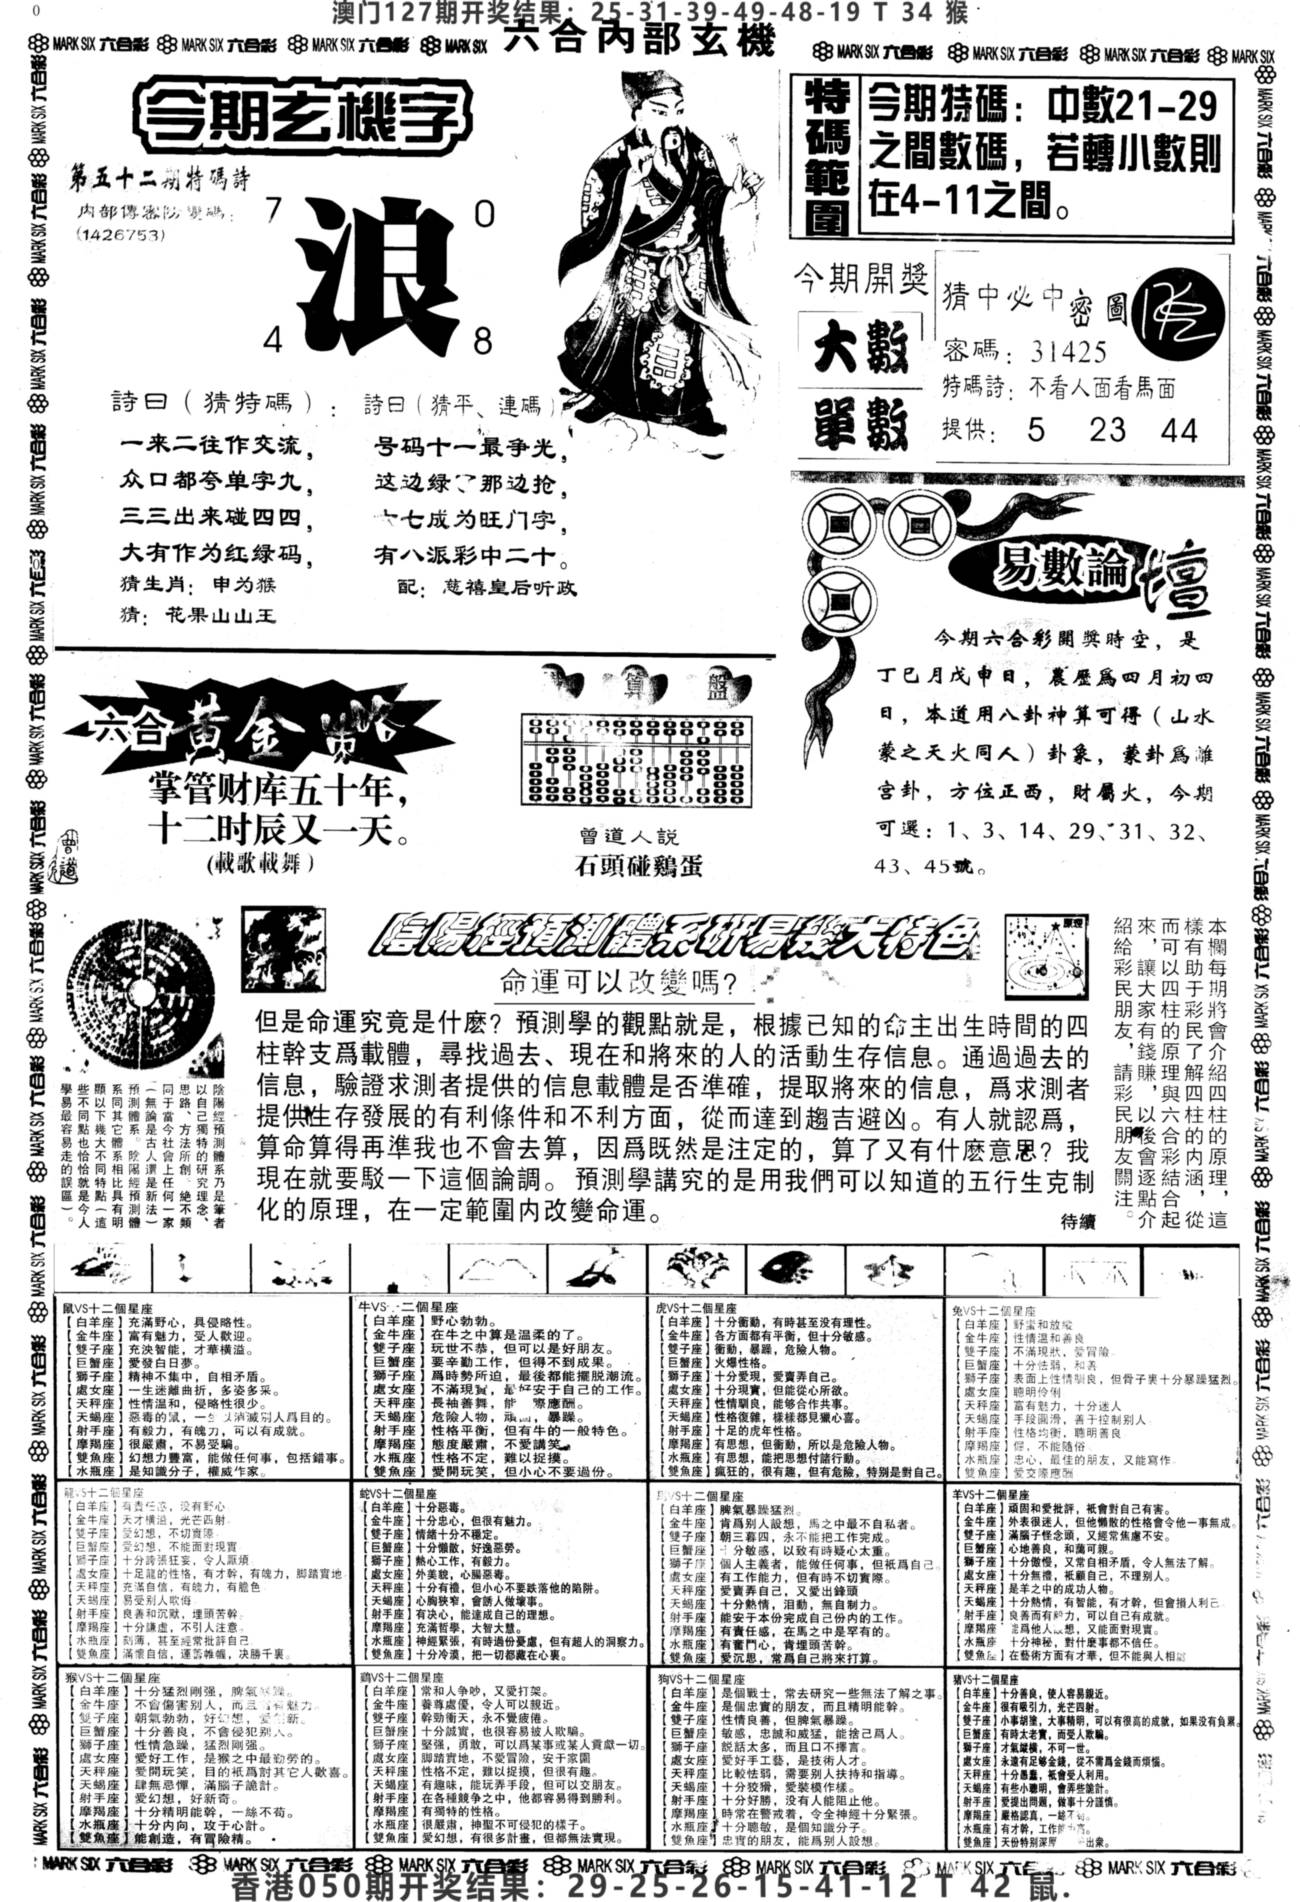 澳门127期开奖结果：25-31-39-49-48-19 T 34 猴
六合內部玄機
MARK SIX 六合彩
今期玄機字
第五十二期特碼詩
(1426753)
7
0
浪
4
8
詩曰（猜特碼）：
一来二往作交流，
众口都夸单字九，
三三出来碰四四，
大有作为红绿码，
猜生肖：申为猴
猜：花果山山王
詩曰（猜平、連碼）
号码十一最争光，
这边绿 那边抢，
七成为旺门字，
有八派彩中二十。
配：慈禧皇后听政
特碼範圍
今期特碼：中數21-29
之間數碼，若轉小數則
在4-11之間。
今期開獎
大數
單數
猜中必中密圖
密碼：31425
特碼詩：不看人面看馬面
提供：5 23 44
易數論壇
今期六合彩開獎時空，是
丁巳月戊申日，農歷爲四月初四
日，本道用八卦神算可得（山水
蒙之天火同人）卦象，蒙卦爲離
宮卦，方位正西，財屬火，今期
可選：1、3、14、29、31、32、
43、45號。
六合黃金策略
掌管财库五十年，
十二时辰又一天。
(載歌載舞)
算盤
曾道人説
石頭碰鷄蛋
陰陽經預測體系研易幾大特色
命運可以改變嗎？
但是命運究竟是什麽？預測學的觀點就是，根據已知的命主出生時間的四
柱幹支爲載體，尋找過去、現在和將來的人的活動生存信息。通過過去的
信息，驗證求測者提供的信息載體是否準確，提取將來的信息，爲求測者
提供生存發展的有利條件和不利方面，從而達到趨吉避凶。有人就認爲，
算命算得再準我也不會去算，因爲既然是注定的，算了又有什麽意思？我
現在就要駁一下這個論調。預測學講究的是用我們可以知道的五行生克制
化的原理，在一定範圍内改變命運。
待續
陰陽經預測體系乃是筆者
以自己獨特的研究理念、
思路、方法所創，絶不類
同于當今社會上任何一家
（無論是古人還是新法）
預測體系。陰陽經預測體
系同其它體系相比具有明
顯以下幾大不同特點（這
些不同點也恰恰就是今人
學易最容易走的誤區）。
本欄每期將會介紹四柱的原理，這
樣有助于彩民了解四柱的内涵，從
而可以四柱的原理與六合彩結合起
來，讓大家有錢賺，以後會逐點介
紹給彩民朋友，請彩民朋友關注。
鼠VS十二個星座
【白羊座】充滿野心，具侵略性。
【金牛座】富有魅力，受人歡迎。
【雙子座】充泱智能，才華橫溢。
【巨蟹座】愛發白日夢。
【獅子座】精神不集中，自相矛盾。
【處女座】一生迷離曲折，多姿多采。
【天秤座】性情溫和，侵略性很少。
【天蝎座】惡毒的鼠，一生以消滅别人爲目的。
【射手座】有毅力，有魄力，可以有成就。
【摩羯座】很嚴肅，不易受騙。
【雙魚座】幻想力豐富，能做任何事，包括錯事。
【水瓶座】是知識分子，權威作家。
牛VS十二個星座
【白羊座】野心勃勃。
【金牛座】在牛之中算是溫柔的了。
【雙子座】玩世不恭，但可以是好朋友。
【巨蟹座】要辛勤工作，但得不到成果。
【獅子座】爲時勢所迫，最後都能擺脱潮流。
【處女座】不滿現實，最好安于自己的工作。
【天秤座】長袖善舞，能 際應酬。
【天蝎座】危險人物，頑固，暴躁。
【射手座】性格平衡，但有牛的一般特色。
【摩羯座】態度嚴肅，不愛講笑。
【水瓶座】性格不定，難以捉摸。
【雙魚座】愛開玩笑，但小心不要過份。
虎VS十二個星座
【白羊座】十分衝動，有時甚至没有理性。
【金牛座】各方面都有平衡，但十分敏感。
【雙子座】衝動，暴躁，危險人物。
【巨蟹座】火爆性格。
【獅子座】十分愛現，愛賣弄自己。
【處女座】十分現實，但能從心所欲。
【天秤座】性情馴良，能够合作共事。
【天蝎座】性格復雜，樣樣都見獵心喜。
【射手座】十足的虎年性格。
【摩羯座】有思想，但衝動，所以是危險人物。
【水瓶座】有思想，能把思想付諸行動。
【雙魚座】瘋狂的，很有趣，但有危險，特别是對自己。
兔VS十二個星座
【白羊座】野蠻和放縱
【金牛座】性情溫和善良
【雙子座】不滿現狀，愛冒險
【巨蟹座】十分怯弱，和善
【獅子座】表面上性情馴良，但骨子裏十分暴躁猛烈。
【處女座】聰明伶俐
【天秤座】富有魅力，十分迷人
【天蝎座】手段圓滑，善于控制别人
【射手座】性格均衡，聰明善良
【摩羯座】倔，不能隨俗
【水瓶座】忠心，最佳的朋友，又能寫作
【雙魚座】愛交際應酬
龍VS十二個星座
【白羊座】有責任感，没有野心
【金牛座】天才橫沿，光芒四射
【雙子座】愛幻想，不切實際
【巨蟹座】愛幻想，不能面對現實
【獅子座】十分誇張狂妄，令人厭煩
【處女座】十足龍的性格，有才幹，有魄力，脚踏實地
【天秤座】充滿自信，有魄力，有膽色
【天蝎座】易受别人欺侮
【射手座】良善和沉默，埋頭苦幹
【摩羯座】十分謙虚，不引人注意
【水瓶座】刻薄，甚至經常批評自己
【雙魚座】滿懷自信，運籌帷幄，决勝千裏。
蛇VS十二個星座
【白羊座】十分惡毒。
【金牛座】十分忠心，但很有魅力。
【雙子座】情緒十分不穩定。
【巨蟹座】十分懶散，好逸惡勞。
【獅子座】熱心工作，有毅力。
【處女座】外美貌，心腸惡毒。
【天秤座】十分有禮，但小心不要跌落他的陷阱。
【天蝎座】心胸狹窄，會誘人做壞事。
【射手座】有决心，能達成自己的理想。
【摩羯座】充滿哲學，大智大慧。
【水瓶座】神經緊張，有時過份憂慮，但有超人的洞察力。
【雙魚座】十分冷漠，把一切都藏在心裏。
馬VS十二個星座
【白羊座】脾氣暴躁猛烈。
【金牛座】肯爲别人設想，馬之中最不自私者。
【雙子座】朝三暮四，永不能把工作完成。
【巨蟹座】十分敏感，以致有時疑心太重。
【獅子座】個人主義者，能做任何事，但祇爲自己。
【處女座】有工作能力，但有時不切實際。
【天秤座】愛賣弄自己，又愛出鋒頭
【天蝎座】十分熱情，泪動，無自制力。
【射手座】能安于本份完成自己份内的工作。
【摩羯座】有責任感，在馬之中是罕有的。
【水瓶座】有奮鬥心，肯埋頭苦幹。
【雙魚座】愛沉思，常爲自己將來打算。
羊VS十二個星座
【白羊座】頑固和愛批評，祇會對自己有害。
【金牛座】外表很迷人，但他懶散的性格會令他一事無成。
【雙子座】滿腦子怪念頭，又經常焦慮不安。
【巨蟹座】心地善良，和藹可親。
【獅子座】十分傲慢，又常自相矛盾，令人無法了解。
【處女座】十分無禮，祇顧自己，不理别人。
【天秤座】是羊之中的成功人物。
【天蝎座】十分熱情，有智能，有才幹，但會損人利己
【射手座】良善而有毅力，可以自己有成就。
【摩羯座】能爲他人設想，又能面對現實。
【水瓶座】十分神秘，對什麽事都不信任。
【雙魚座】在藝術方面有才華，但不能與人相
猴VS十二個星座
【白羊座】十分猛烈剛强，脾氣暴躁。
【金牛座】不會傷害别人，而且富有魅力。
【雙子座】朝氣勃勃，好幻想，愛創新。
【巨蟹座】十分善良，不會侵犯别人。
【獅子座】性情急躁，猛烈剛强。
【處女座】愛好工作，是猴之中最勤勞的。
【天秤座】愛開玩笑，目的祇爲討其它人歡喜。
【天蝎座】肆無忌憚，滿腦子詭計。
【射手座】愛幻想，好新奇。
【摩羯座】十分精明能幹，一絲不苟。
【水瓶座】十分内向，攻于心計。
【雙魚座】能創造，有冒險精。
鷄VS十二個星座
【白羊座】常和人争吵，又愛打架。
【金牛座】養尊處優，令人可以親近。
【雙子座】幹勁衝天，永不覺疲倦。
【巨蟹座】十分誠實，也很容易被人欺騙。
【獅子座】堅强，勇敢，可以爲某事或某人貢獻一切。
【處女座】脚踏實地，不愛冒險，安于家園
【天秤座】性格不定，難以捉摸，但很有趣。
【天蝎座】有趣味，能玩弄手段，但可以交朋友。
【射手座】在各種競争之中，他都容易得到勝利。
【摩羯座】有獨特的性格。
【水瓶座】很嚴肅，神聖不可侵犯的樣子。
【雙魚座】愛幻想，有很多計畫，但都無法實現。
狗VS十二個星座
【白羊座】是個戰士，常去研究一些無法了解之事。
【金牛座】是個忠實的朋友，而且精明能幹。
【雙子座】性情良善，但脾氣暴躁。
【巨蟹座】敏感，忠誠和威猛，能捨己爲人。
【獅子座】説話太多，而且口不擇言。
【處女座】愛好手工藝，是技術人才。
【天秤座】比較怯弱，需要别人扶持和指導。
【天蝎座】十分狡猾，愛裝模作樣。
【射手座】十分好勝，没有人能阻止他。
【摩羯座】時常在警戒着，令全神經十分緊張。
【水瓶座】十分聰敏，是個知識分子。
【雙魚座】忠實的朋友，能爲别人設想。
猪VS十二個星座
【白羊座】十分善良，使人容易親近。
【金牛座】很有吸引力，光芒四射。
【雙子座】小事胡塗，大事精明，可以有很高的成就，如果没有負累。
【巨蟹座】有時太老實，而受人欺騙。
【獅子座】才氣縱橫，不可一世。
【處女座】永遠有足够金錢，從不需爲金錢而煩惱。
【天秤座】十分愚蠢，祇會受人利用。
【天蝎座】有些小聰明，會弄些詭計。
【射手座】愛提出問題，做事十分謹慎。
【摩羯座】嚴格認真，一絲不苟。
【水瓶座】有才幹，工作
【雙魚座】天份特别深厚 出衆。
MARK SIX 六合彩
香港050期开奖结果：29-25-26-15-41-12 T 42 鼠.